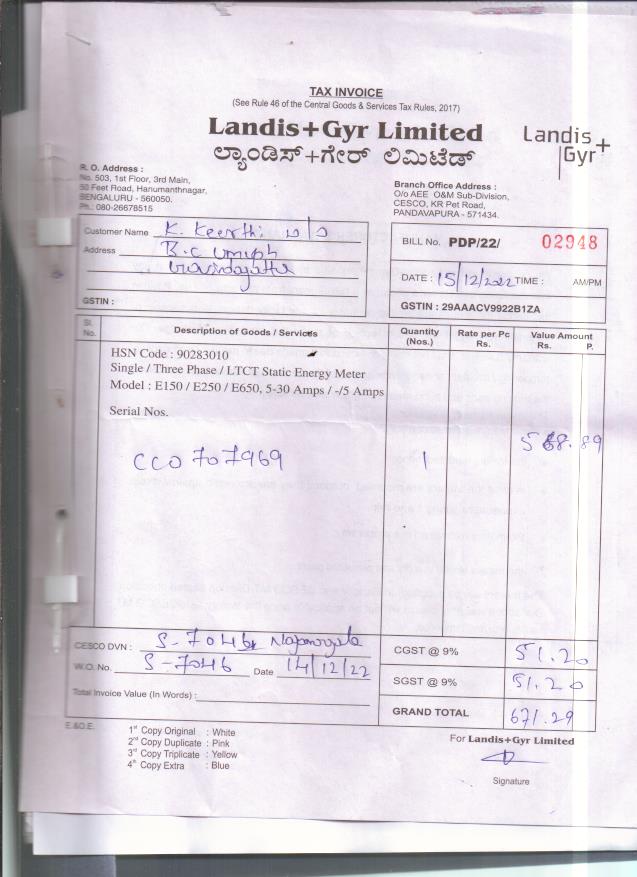 TAX INVOICE
(See Rule 46 of the Central Goods & Services Tax Rules, 2017)
Landis+Gyr Limited
ಲ್ಯಾಂಡಿಸ್+ಗೇರ್ ಲಿಮಿಟೆಡ್
Landis+
Gyr
R. O. Address :
No. 503, 1st Floor, 3rd Main,
Feet Road, Hanumanthnagar,
BENGALURU - 560050.
Ph.: 080-26678515
Branch Office Address :
O/o AEE O&M Sub-Division,
CESCO, KR Pet Road,
PANDAVAPURA - 571434.
Customer Name K. Keerthi
Address B.C
GSTIN :
BILL No. PDP/22/ 02948
DATE : 15/12/2022 TIME : AM/PM
GSTIN : 29AAACV9922B1ZA
Sl. No. Description of Goods / Services Quantity (Nos.) Rate per Pc Rs. Value Amount Rs. P.
HSN Code : 90283010
Single / Three Phase / LTCT Static Energy Meter
Model : E150 / E250 / E650, 5-30 Amps / -/5 Amps
Serial Nos.
CC0707969 1 568.89
CESCO DVN : S-7046
W.O. No. S-7046 Date 14/12/22
Total Invoice Value (In Words) :
CGST @ 9% 51.20
SGST @ 9% 51.20
GRAND TOTAL 671.29
E.&O.E.
1st Copy Original : White
2nd Copy Duplicate : Pink
3rd Copy Triplicate : Yellow
4th Copy Extra : Blue
For Landis+Gyr Limited
Signature